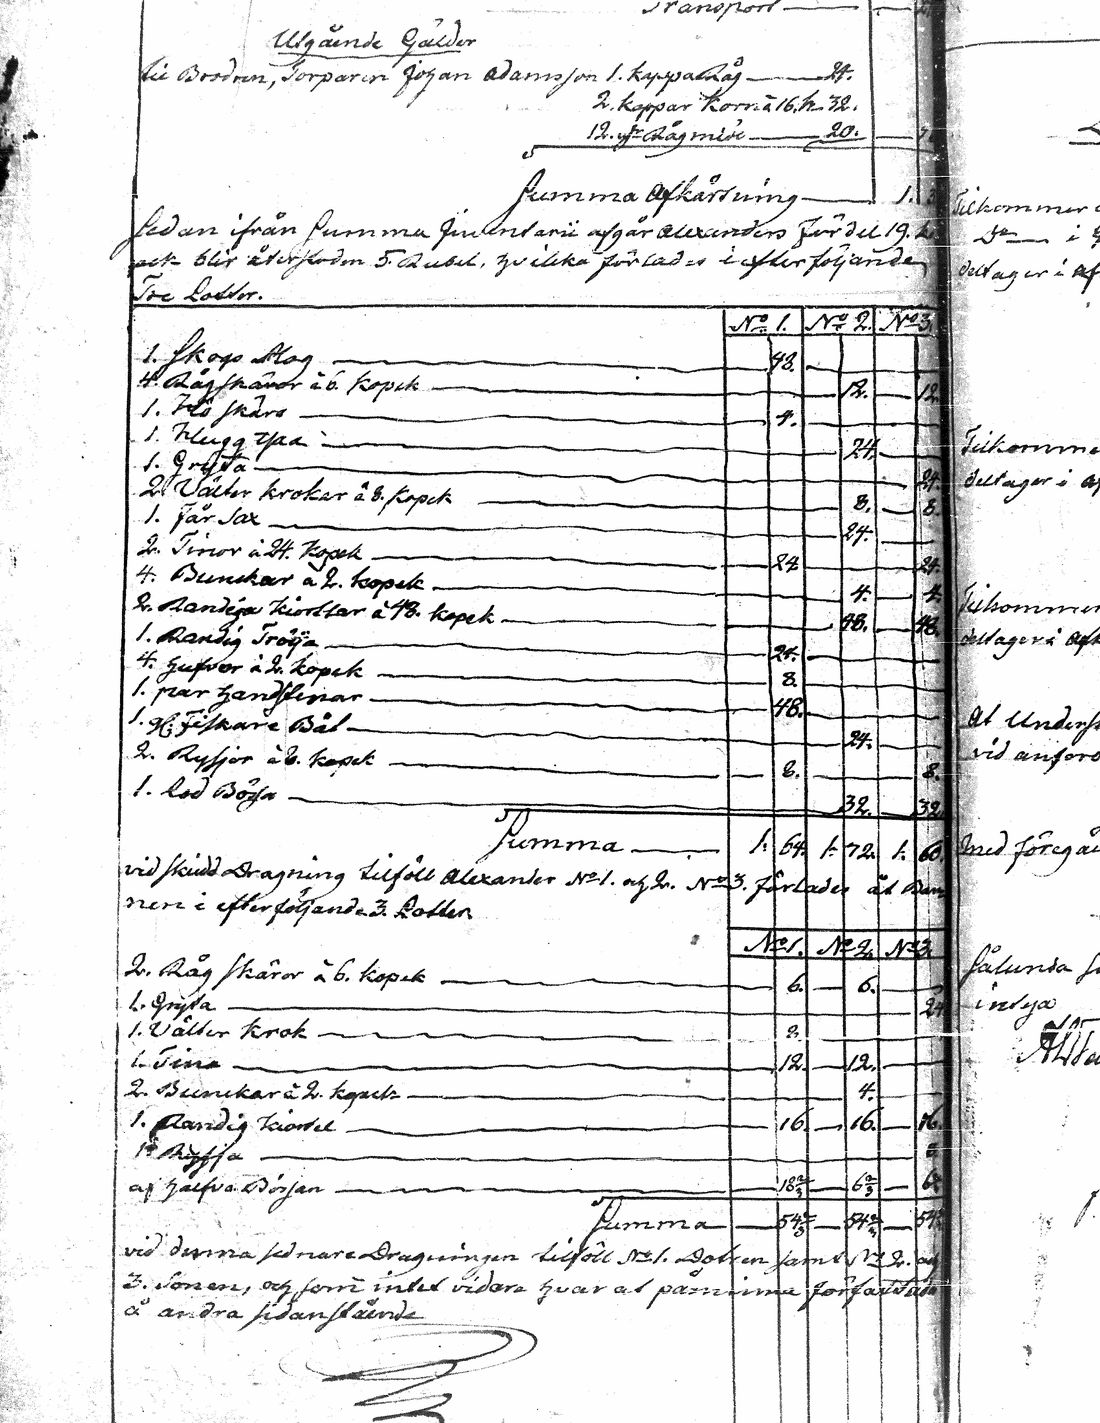 Transport
Utgående Gälder
til Brodren, Torparen Johan Adamsson 1. kappa Råg 24.
2. kappar Korn à 16. k 32.
12. Rågmiöl 20.
Summa Afkårtning 1.
Sedan ifrån Summa Inventarii afgår Alexanders Fördel 19.
och blir återstoden 5. Rubel, hvilka förlades i efterföljande
Tre Lotter.
No 1. No 2. No 3.
1. Skogs 48.
4. Råg skäror à 6. Kopek 12. 12.
1. Hö skära 4.
1. Hugg yxa 24.
1. Gryta 24.
2. Välter krokar à 8. Kopek 8. 8.
1. Får Sax 24.
2. Tinor à 24. Kopek 24 24.
4. Bunckar à 2. kopek 4. 4.
2. Randiga Kiortlar à 48. kopek 48. 48.
1. Randig Tröija 24.
4. Hufvor à 2. kopek 8.
1. par Handskinar 48.
1. gl. Fiskare Båt 24.
2. Rysjor à 8. kopek 8. 8.
1. Lod Bössa 32. 32.
Summa 1. 64. 1. 72. 1. 60.
vid skedd Dragning tilföll Alexander No 1. och 2. No 3. förlades åt Bar
nen i efterföljande 3. Lotter
No 1. No 2. No 3.
2. Råg skäror à 6. kopek 6. 6.
1. Gryta 24
1. Välter krok 8.
1. Tina 12. 12.
2. Bunckar à 2. kopek 4.
1. Randig Kiortel 16. 16. 16.
1. Ryssja
af halfva Bössan 18 2/3 6 2/3 6
Summa 54 2/3 54 2/3 54
vid denna sednare Dragningen tilföll No 1. Dottren samt No 2. och
3. Sonen, och som intet vidare hvar at påminna författades
å andra sidanstående
Tilkommer
Do i
deltager i
Tilkommer
deltager i
Tilkommer
deltager i
At
vid anford
med föregå
Sålunda
intyga